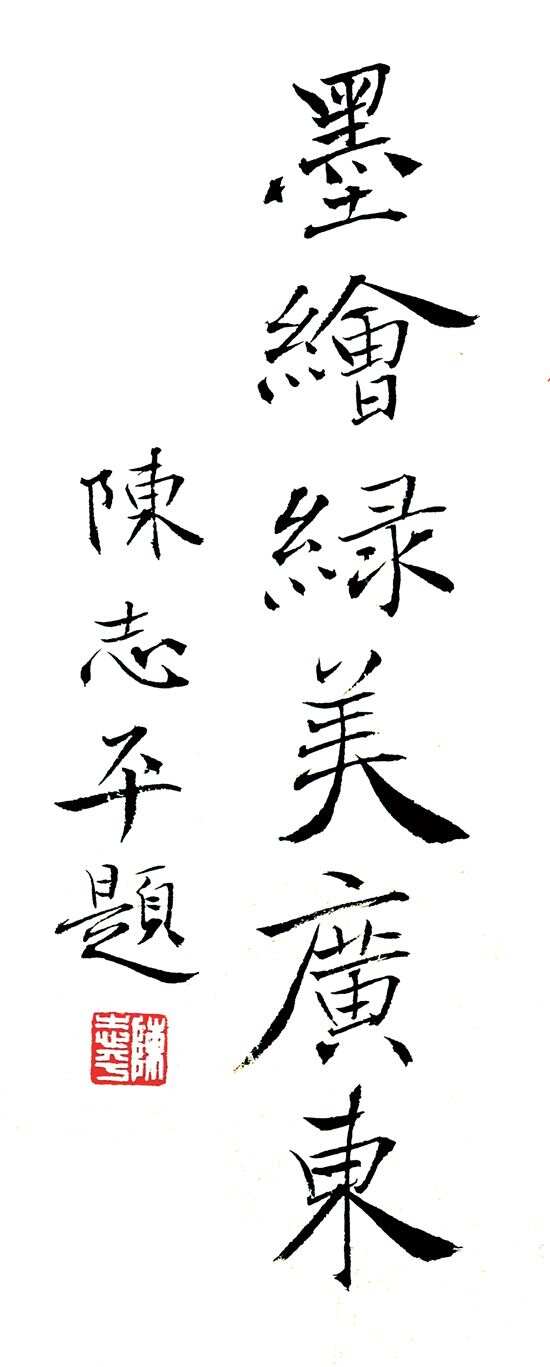 墨繪緑美廣東
陳志平題
陳志平